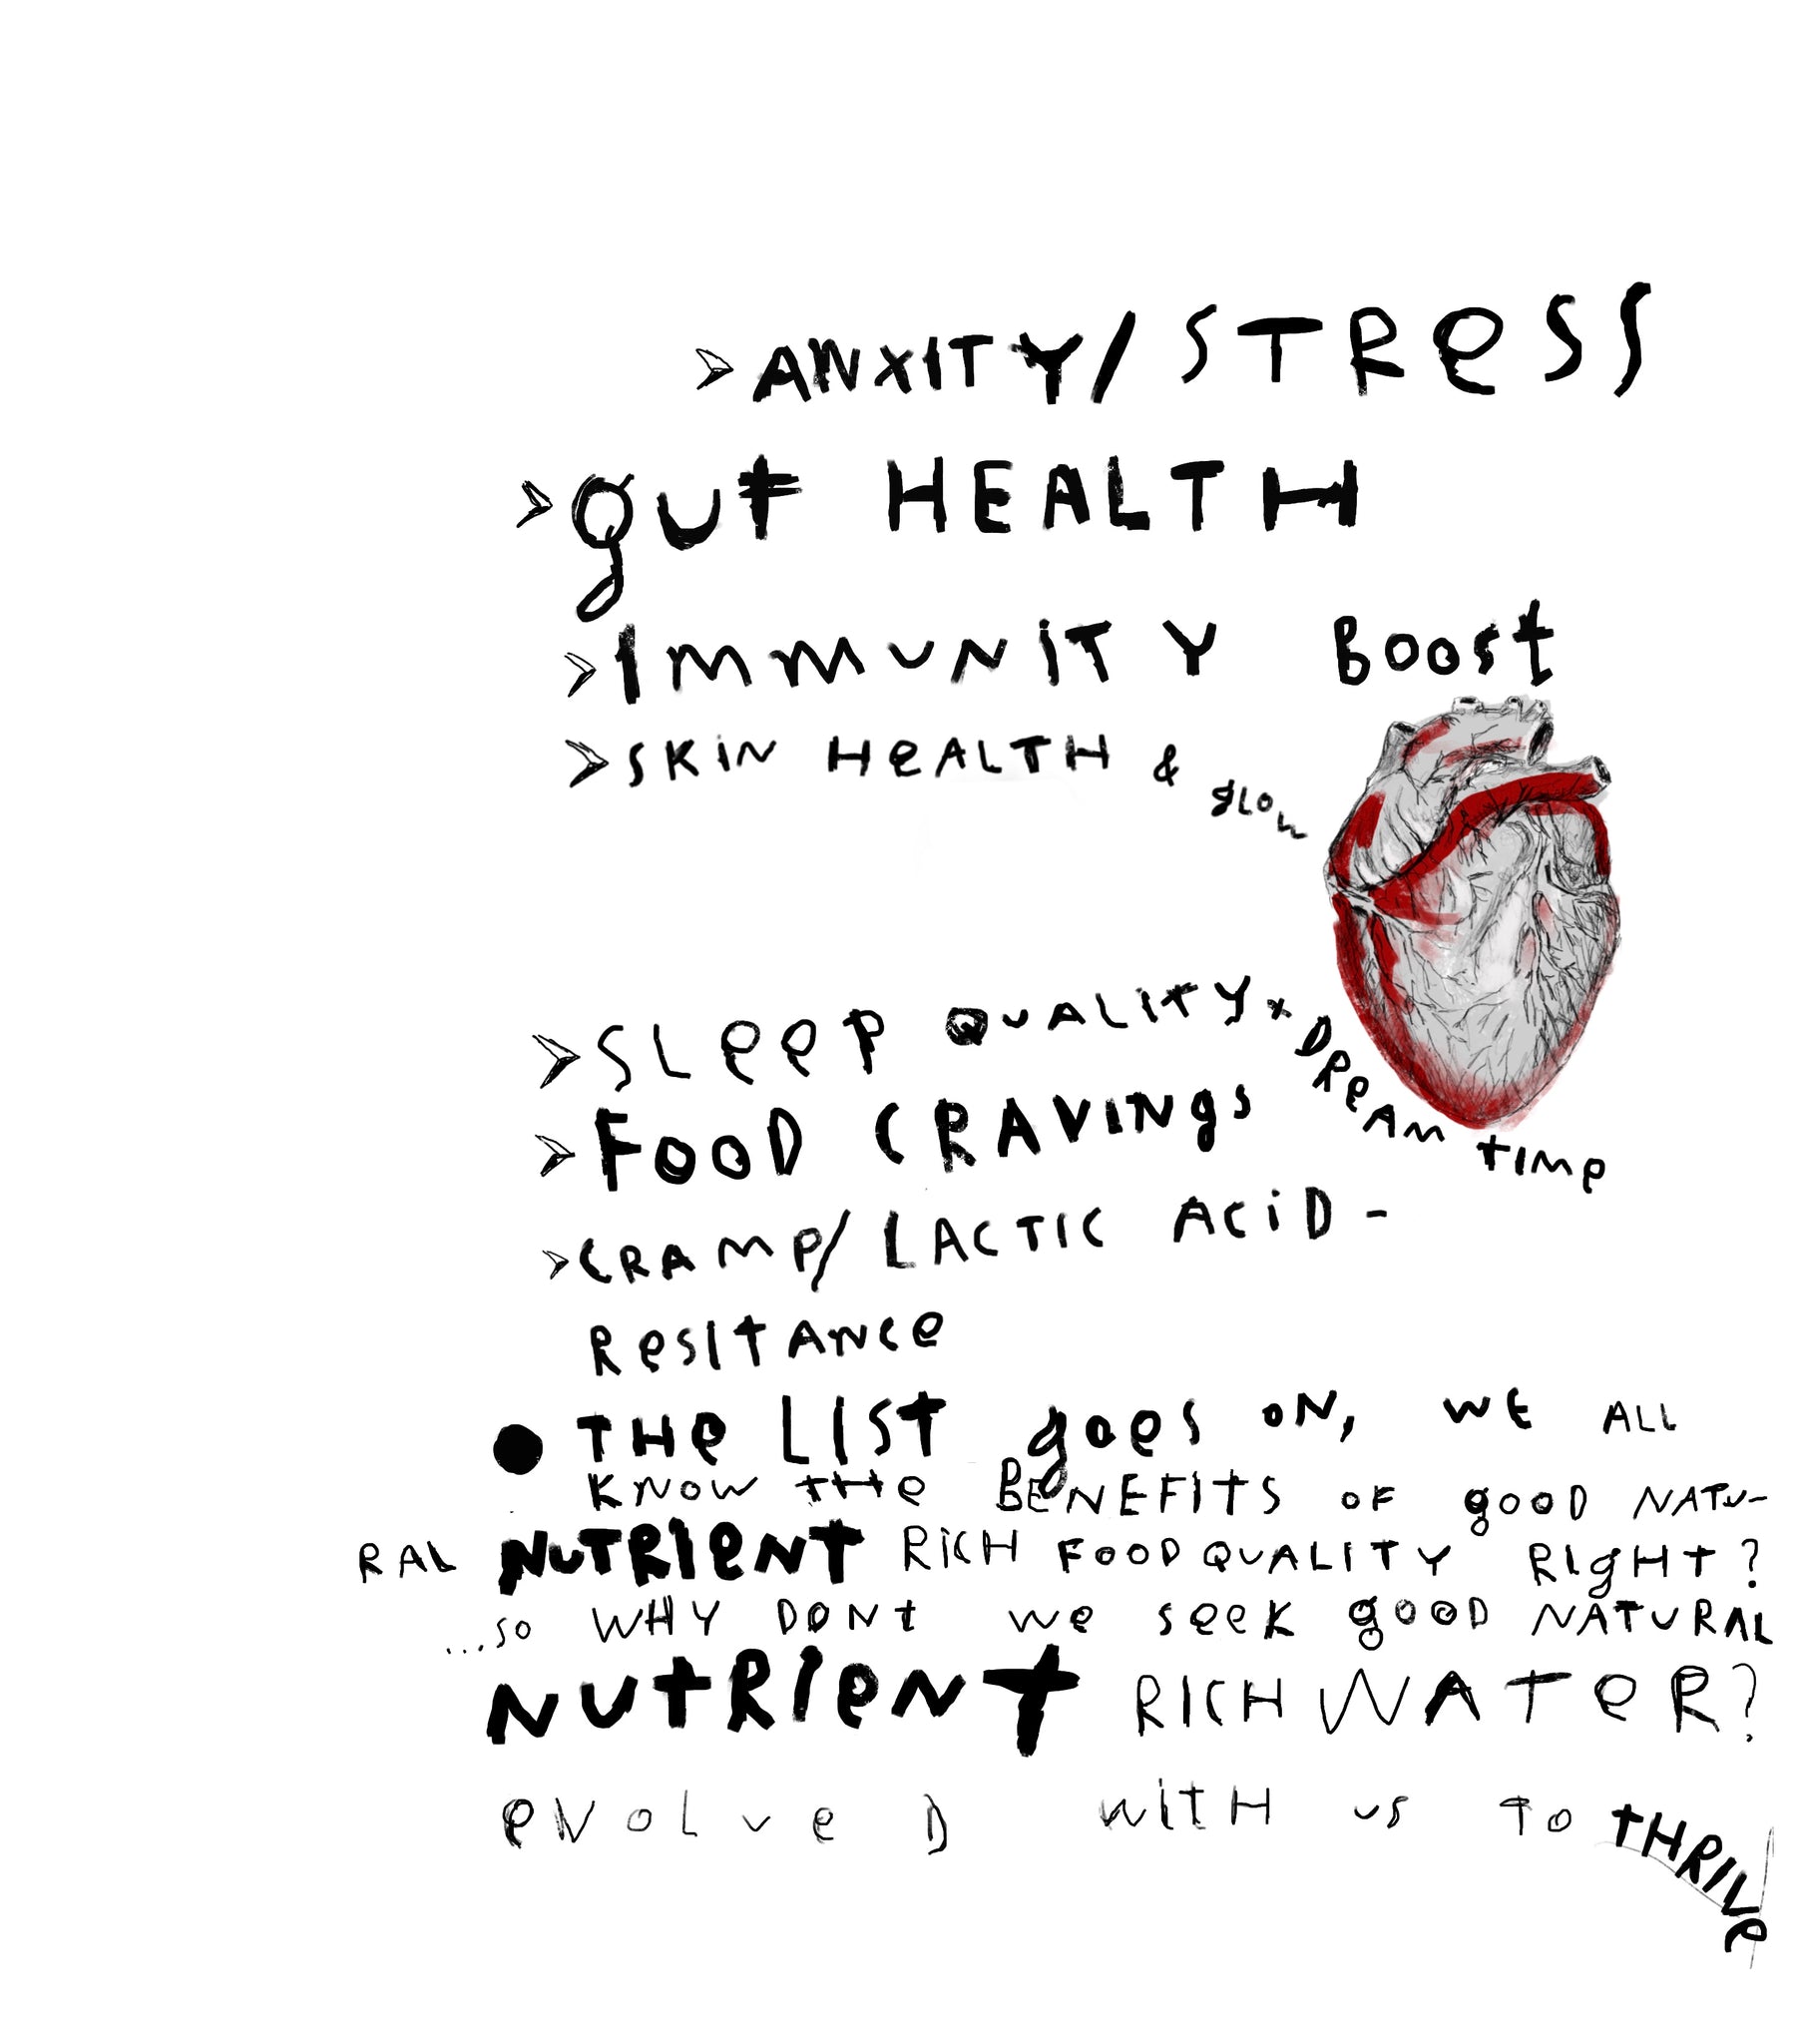 > ANXITY/STReSS
> gut HEALTH
> IMMUNITY Boost
> SKiN HeALTH & gLOW
> SLeeP QuALITY + DReAM tIMe
> FOOD CRAVINgs
> CRAMP/LACTIC ACiD -
ResItANce
● THe LISt goes ON, WE ALL
KNOW tHe BENEFITS OF gOOD NATU-
RAL NUTRIeNT RICH FOOD QUALITY RIgHt?
...SO WHY DONt We SeeK gOOD NATURAL
NutRIeNt RICH WATeR?
eVoLveD WITH us To THRIVe